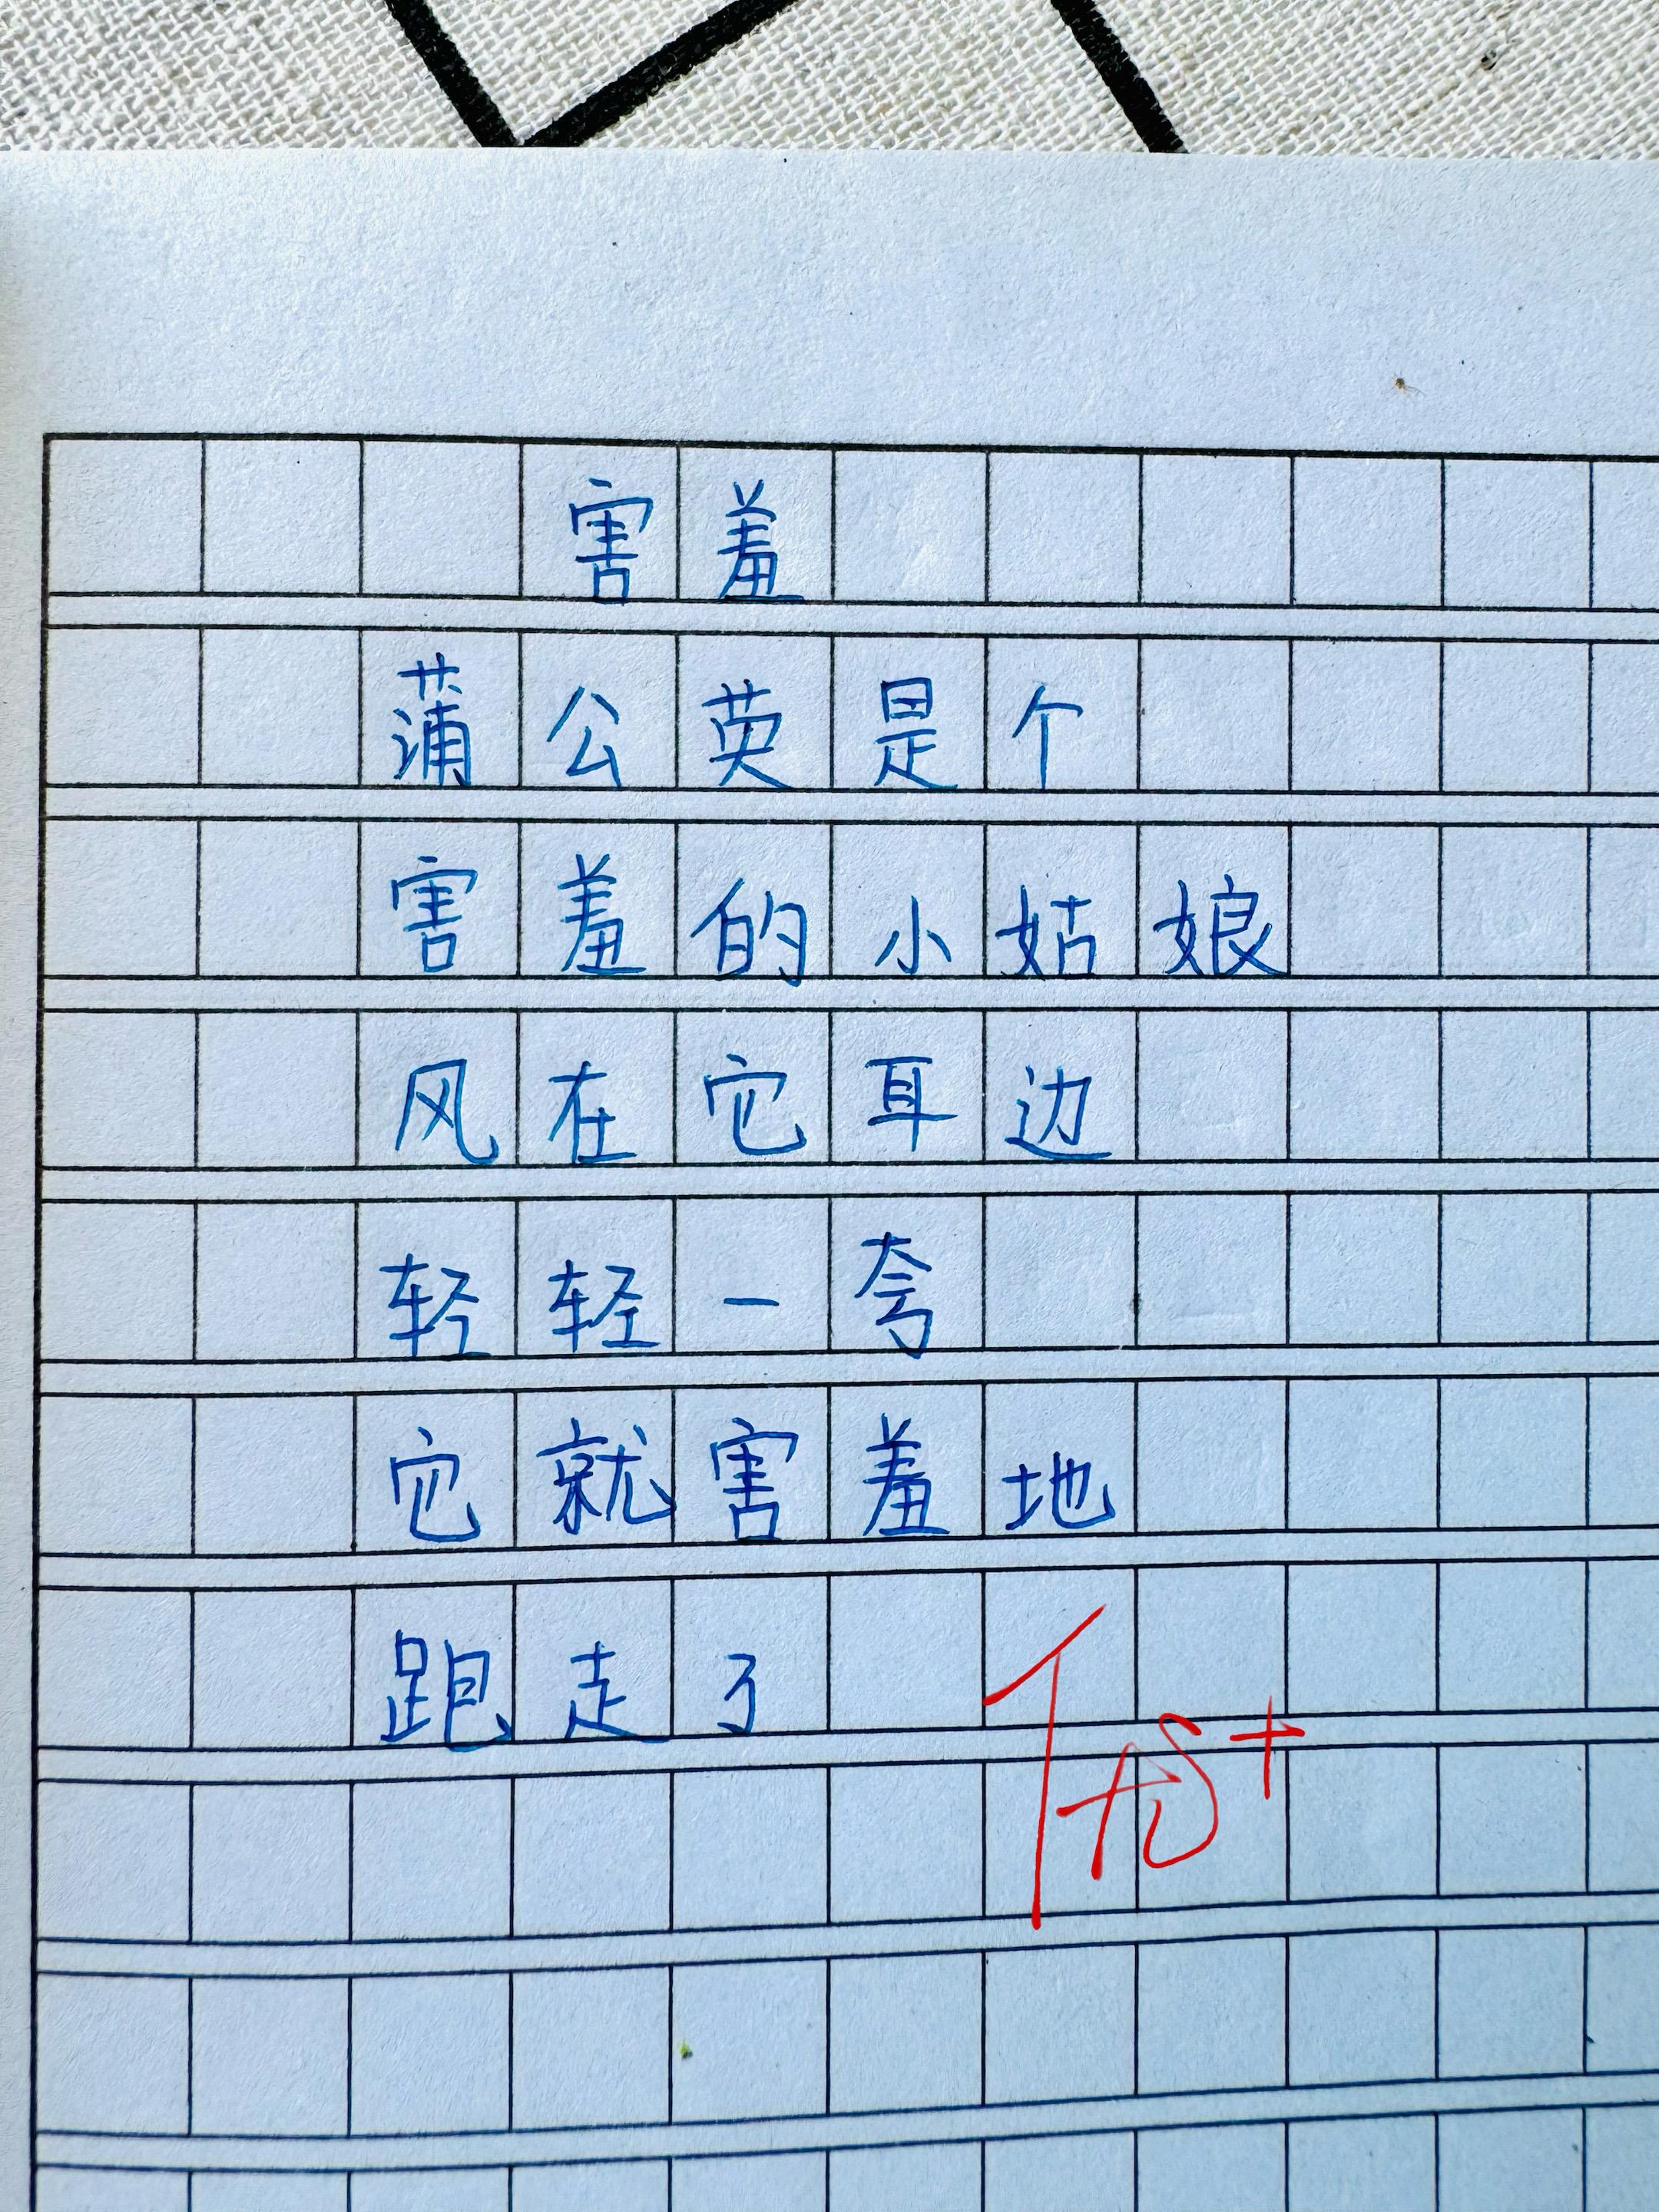 害羞
蒲公英是个
害羞的小姑娘
风在它耳边
轻轻一夸
它就害羞地
跑走了